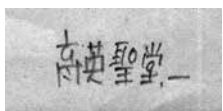 高英聖堂.一